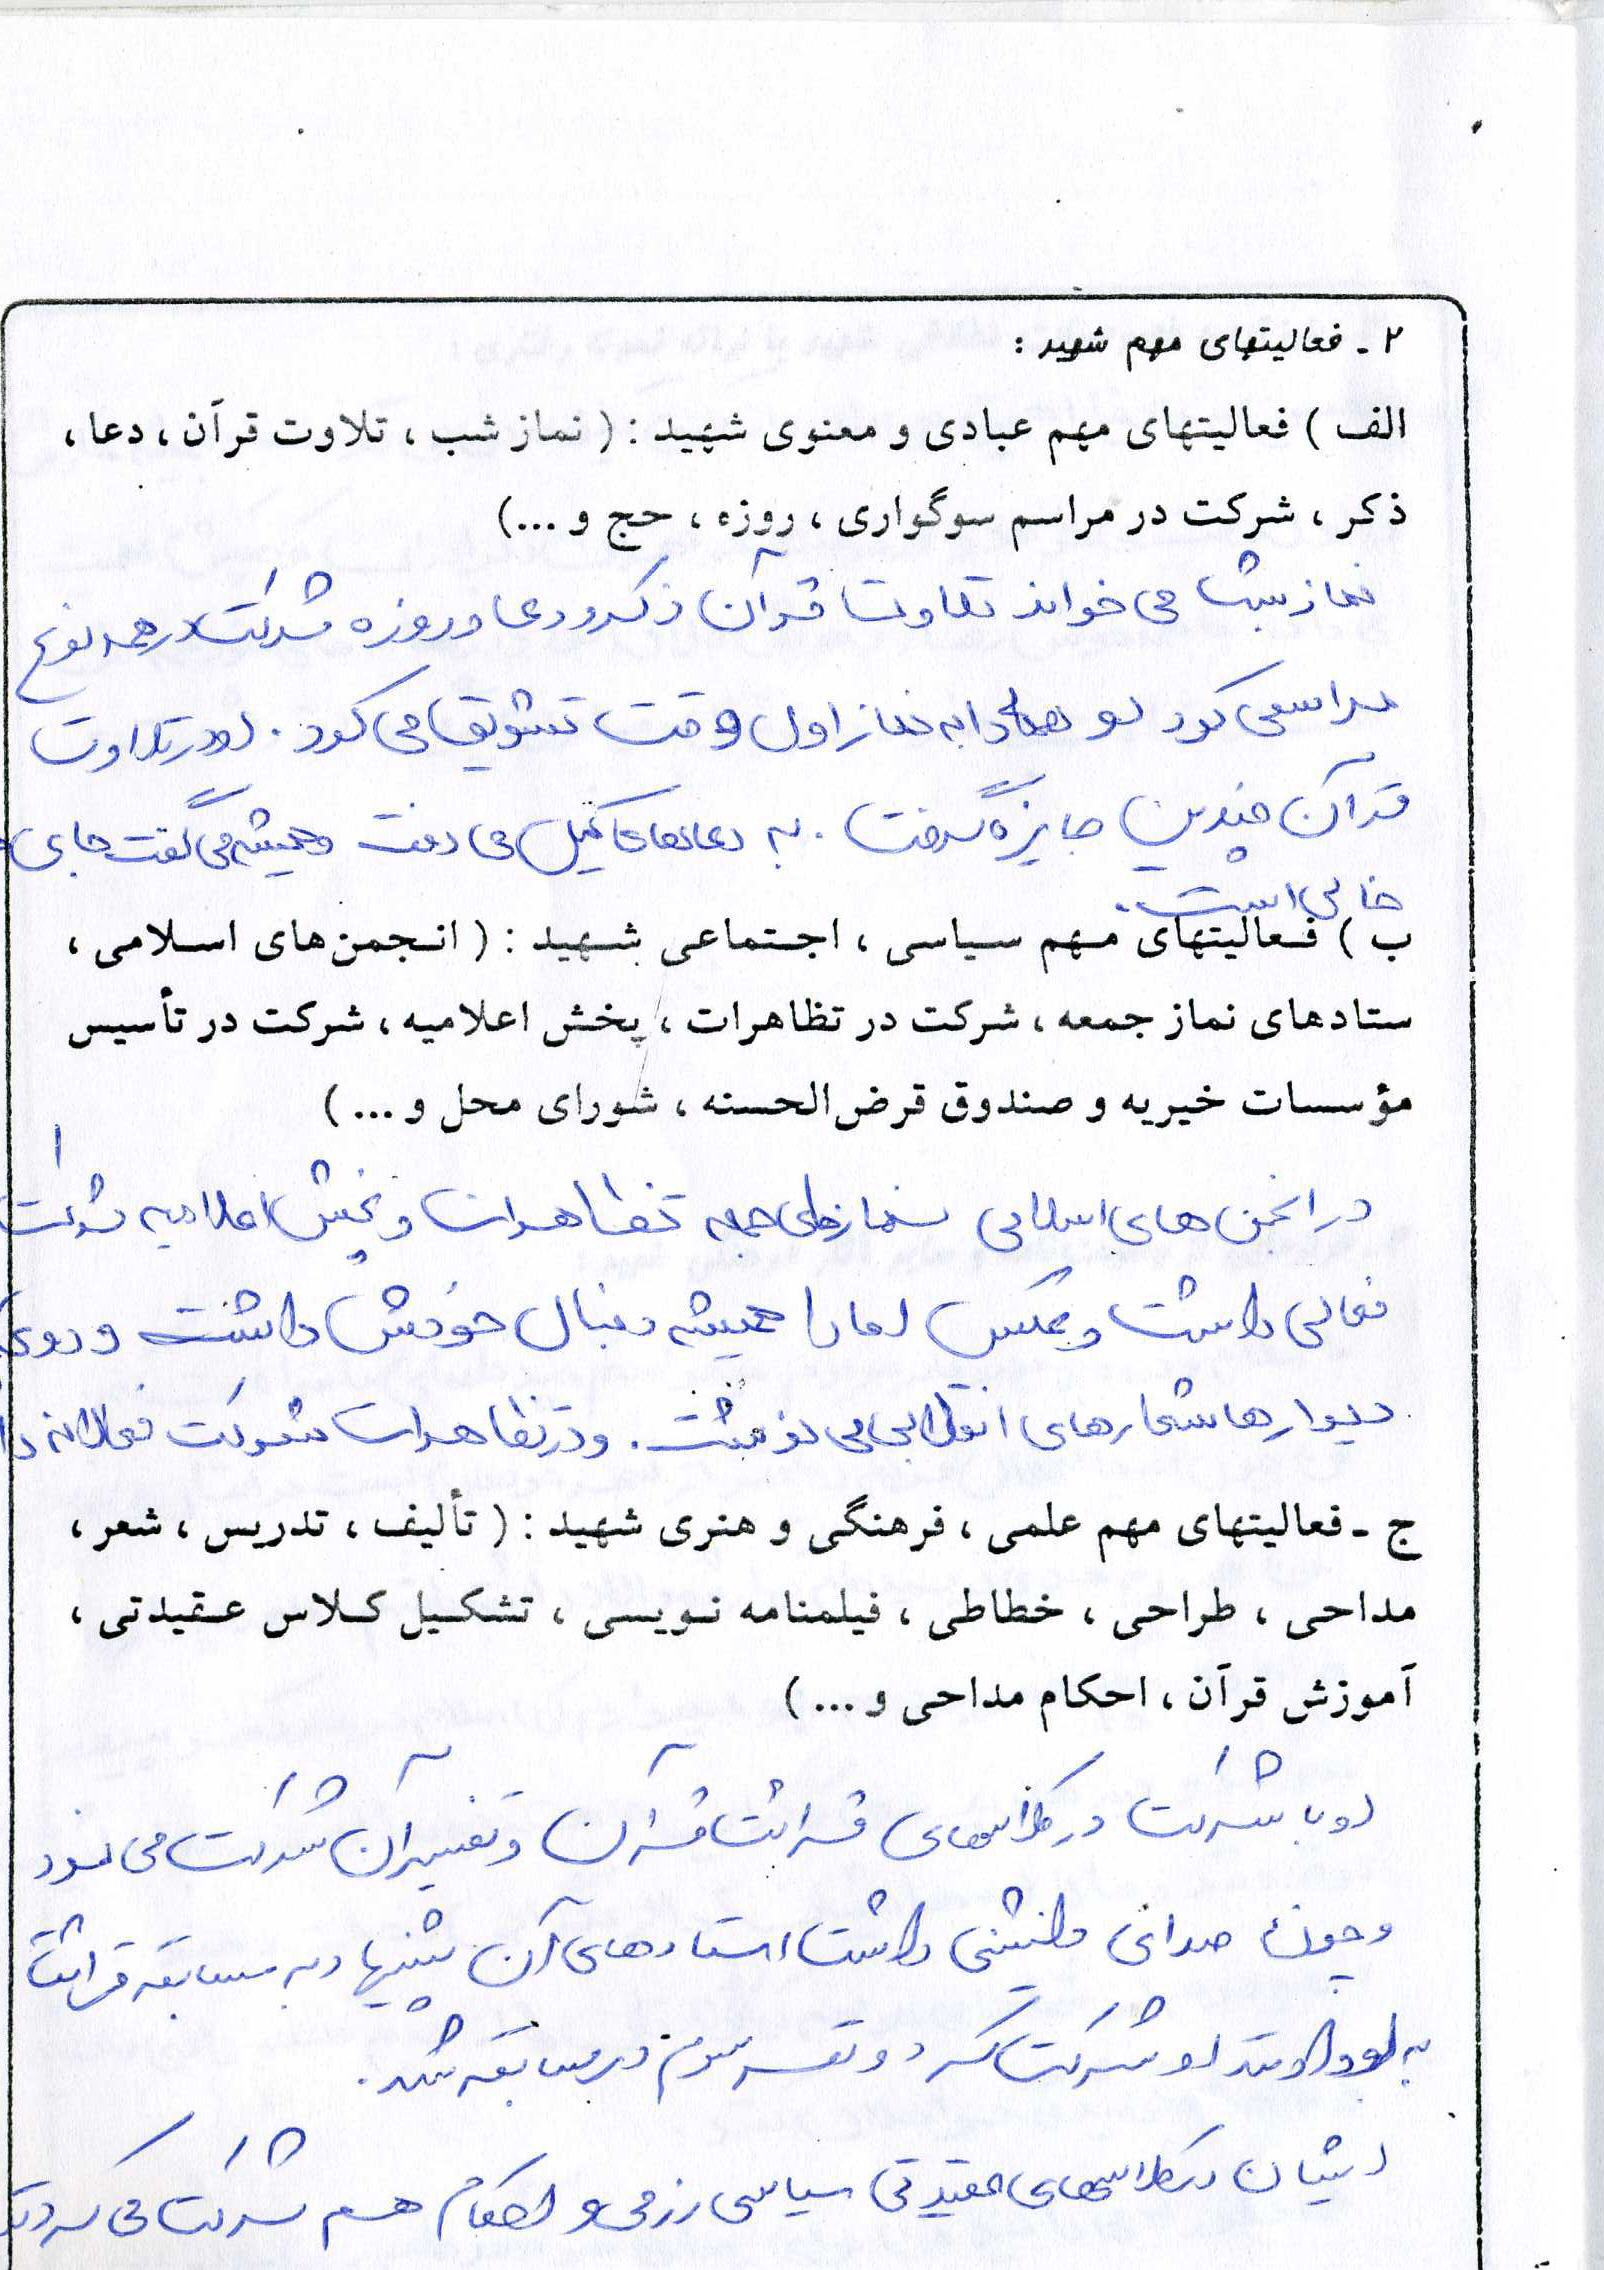 ۲ ـ فعالیتهای مهم شهید :
الف ) فعالیتهای مهم عبادی و معنوی شهید : ( نماز شب ، تلاوت قرآن ، دعا ،
ذکر ، شرکت در مراسم سوگواری ، روزه ، حج و ...)
نماز شب می خواند تلاوت قرآن ذکر و دعا و روزه شرکت در همه نوع
مراسمی کرد او همه را به نماز اول وقت تشویق می کرد . او در تلاوت
قرآن چندین جایزه گرفت . به دعاهای کمیل می رفت و همیشه می گفت جای
خالی است .
ب ) فعالیتهای مهم سیاسی ، اجتماعی شهید : ( انجمن‌های اسلامی ،
ستادهای نماز جمعه ، شرکت در تظاهرات ، پخش اعلامیه ، شرکت در تأسیس
مؤسسات خیریه و صندوق قرض‌الحسنه ، شورای محل و ... )
در انجمن های اسلامی نمازهای جمعه تظاهرات و پخش اعلامیه شرکت
فعالی داشت و عکس امام را همیشه دنبال خودش داشت و روی
دیوارها شعارهای انقلابی می نوشت . و در تظاهرات شرکت فعالانه
ج ـ فعالیتهای مهم علمی ، فرهنگی و هنری شهید : ( تألیف ، تدریس ، شعر ،
مداحی ، طراحی ، خطاطی ، فیلمنامه نویسی ، تشکیل کلاس عقیدتی ،
آموزش قرآن ، احکام مداحی و ... )
او با شرکت در کلاسهای قرائت قرآن و تفسیر آن شرکت می نمود
و چون صدای دلنشینی داشت استادهای آن پیشنهاد به مسابقه قرائت
به او دادند او شرکت کرد و نفر سوم در مسابقه شد .
ایشان در کلاسهای عقیدتی سیاسی رزمی و احکام هم شرکت می کردند